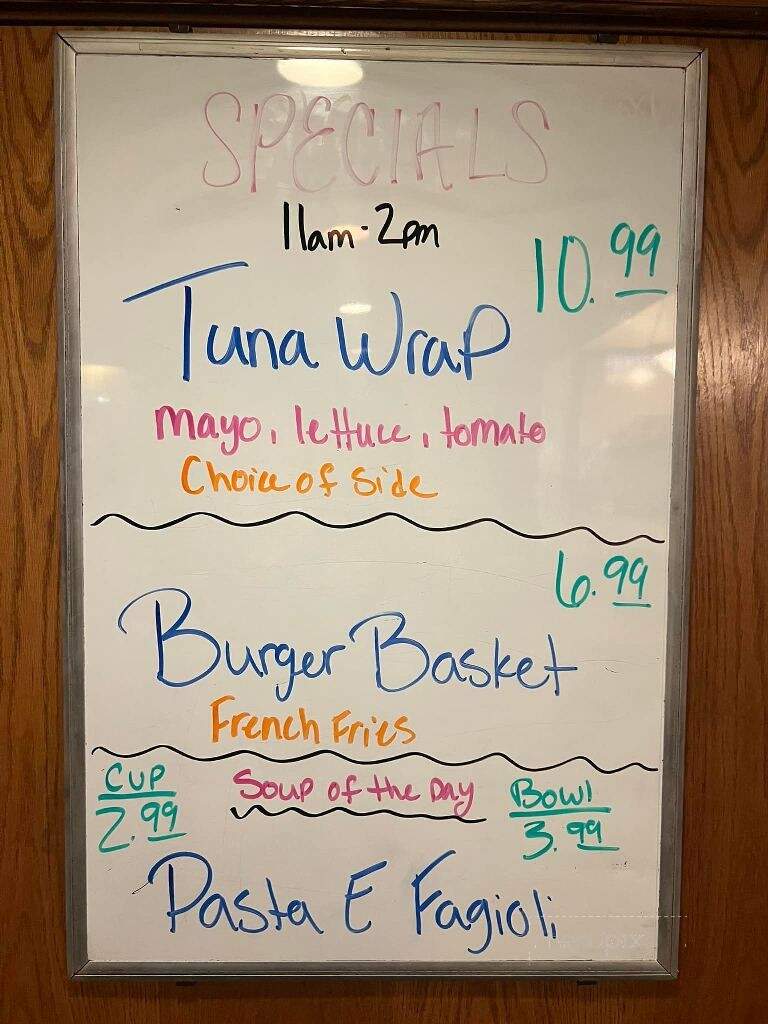 SPECIALS
11am-2pm
10.99
Tuna Wrap
mayo, lettuce, tomato
Choice of Side
6.99
Burger Basket
French Fries
Cup
2.99
Soup of the Day
Bowl
3.99
Pasta E Fagioli